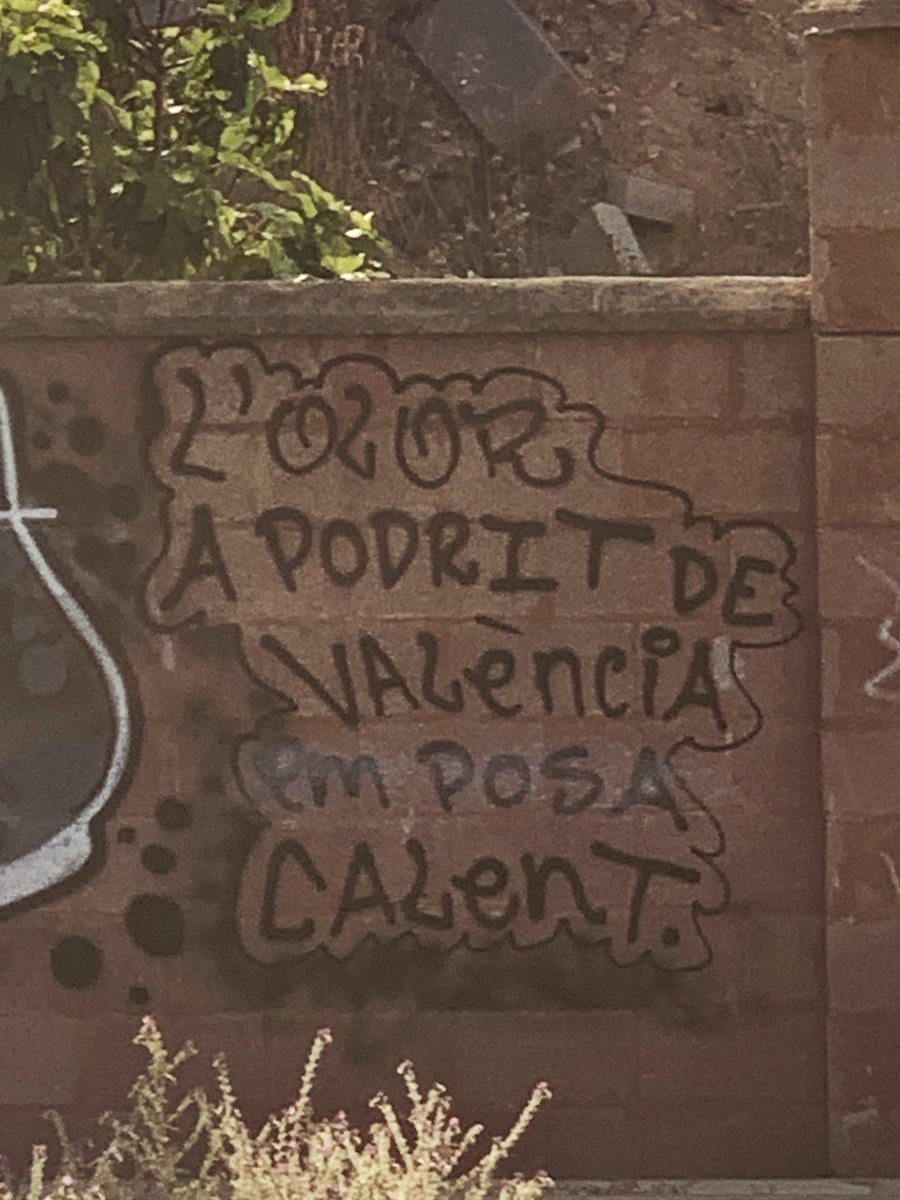 L'OLOR
A PODRIT DE
VALÈNCIA
em POSA
CALENT.